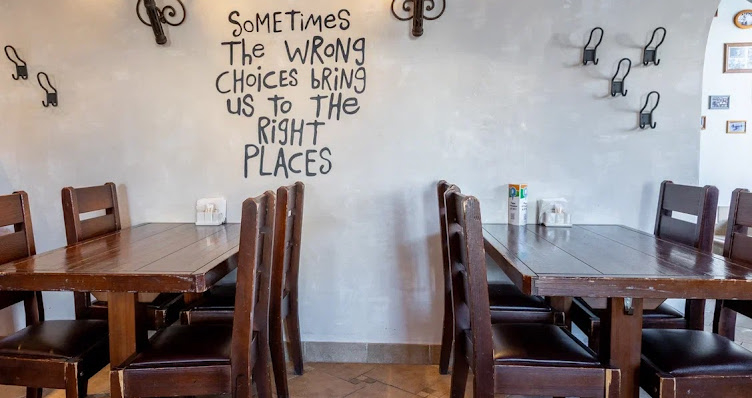 SOMETIMES
The WRONG
CHOICES bRING
US TO THE
RighT
PLACES